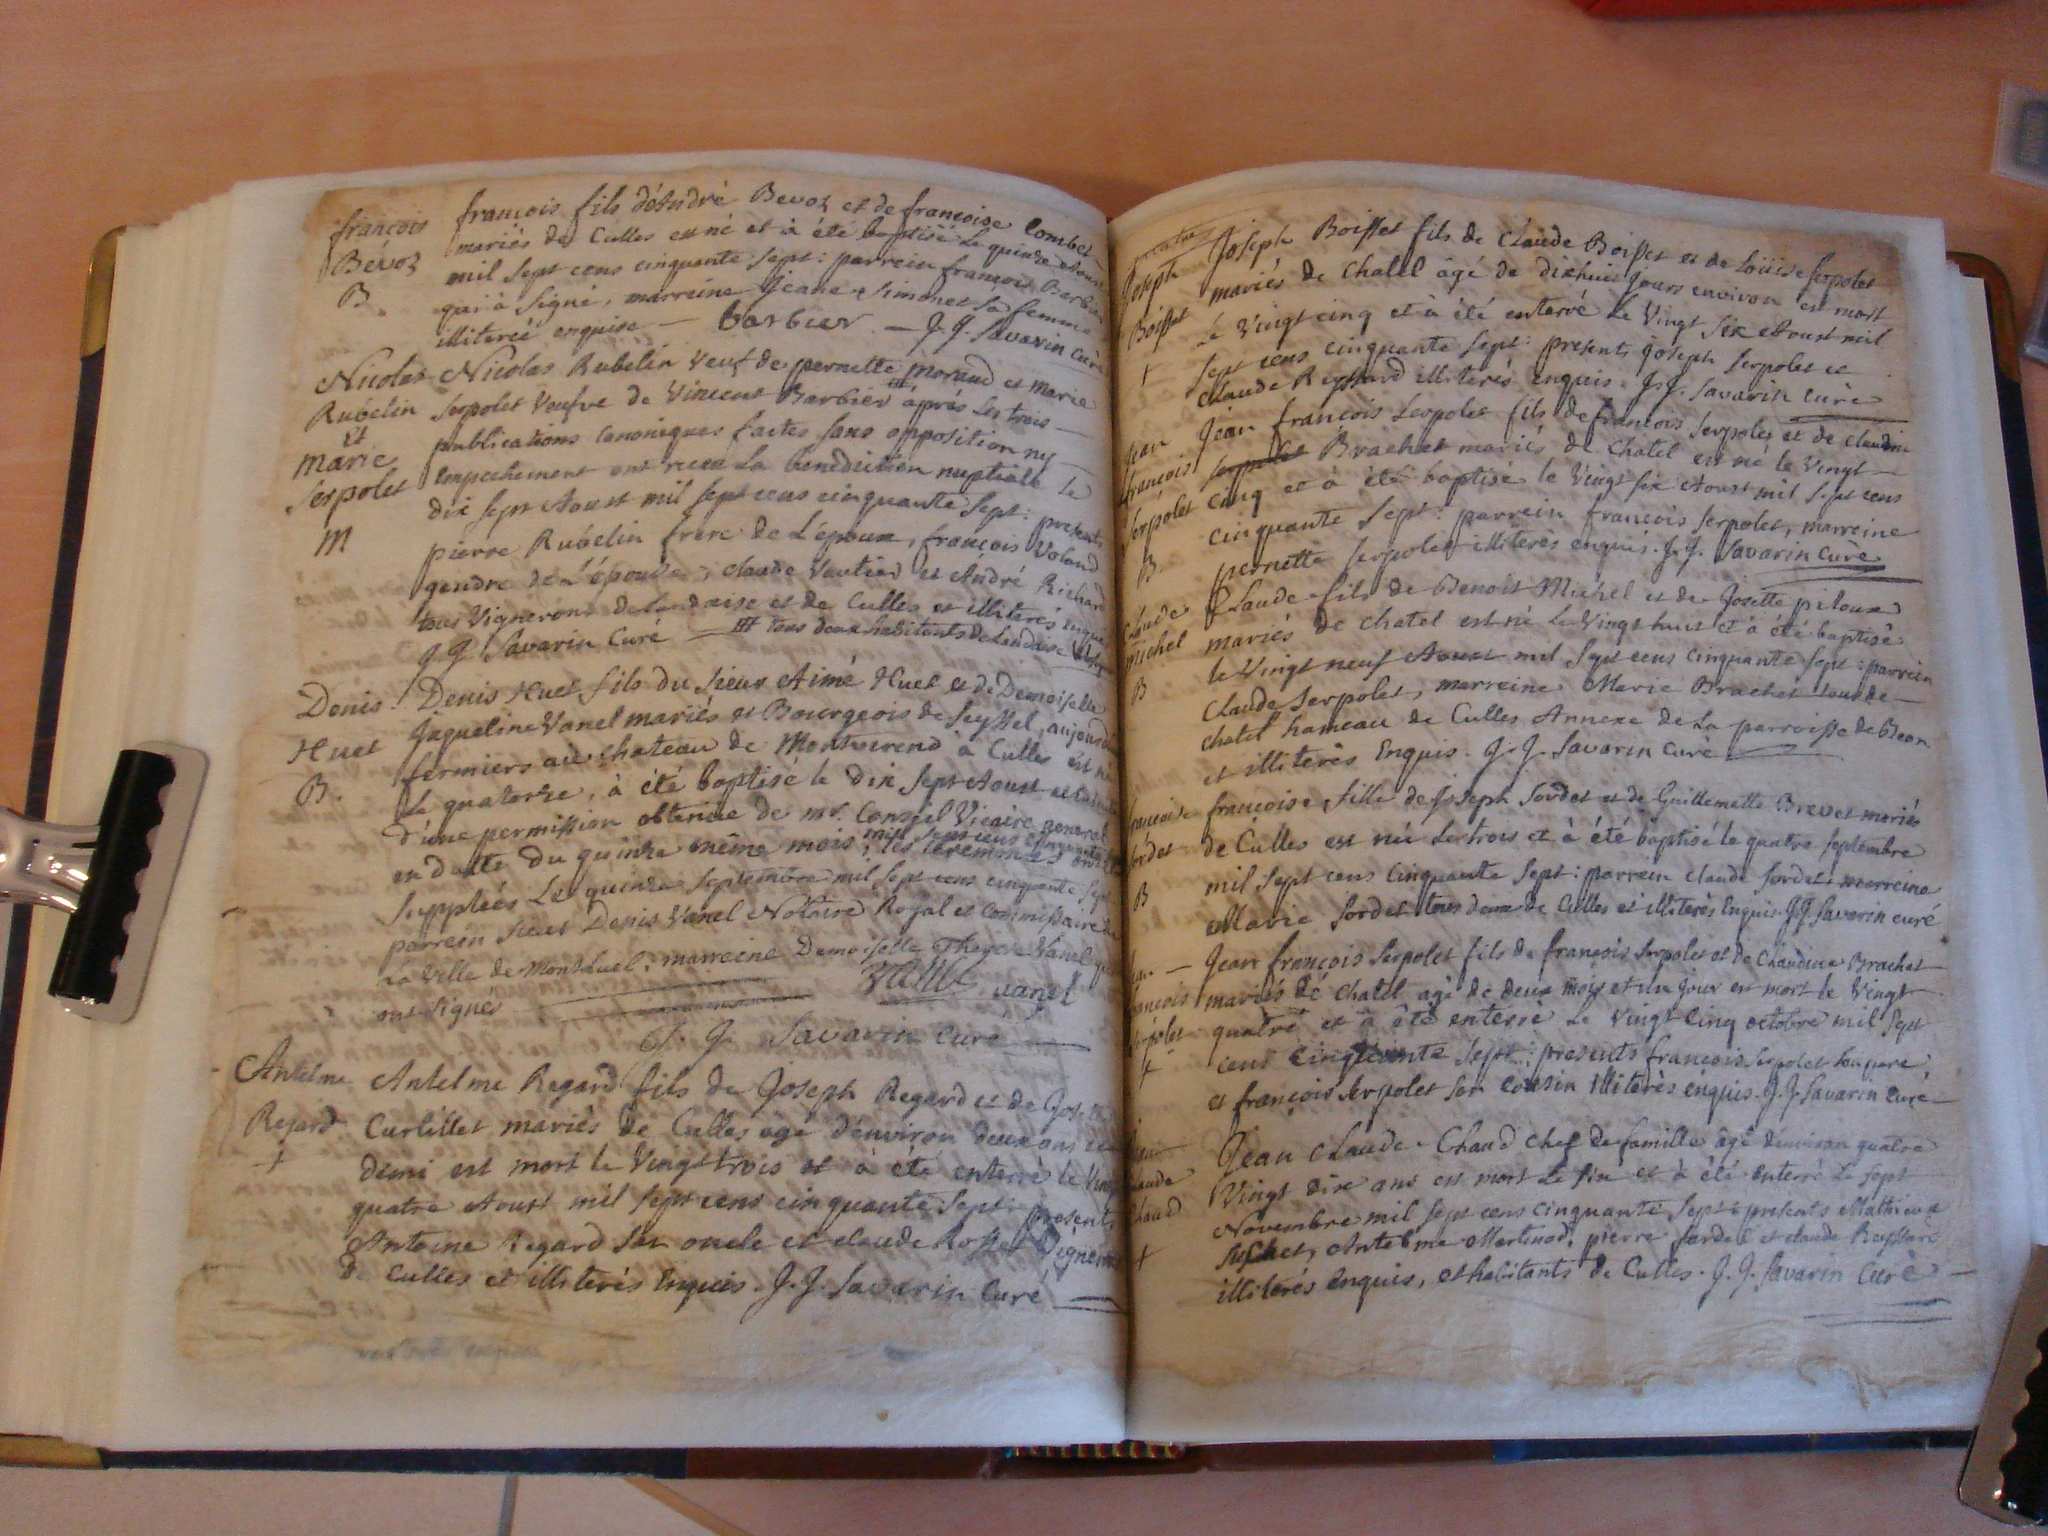 françois
Bévoz
B.
françois fils d'André Bevoz et de françoise Combet
mariés de Culles est né et à été baptisé le quinze Aoust
mil sept cens cinquante sept : parrein françois Barbier
qui à signé, marreine Jeane Simonet sa femme
illiterée enquise — barbier — J. J. Savarin Curé
Nicolas
Rubelin
et
Marie
Serpolet
M
Nicolas Rubelin Veuf de pernette Morand et Marie
Serpolet Veufve de Vincent Barbier après les trois
publications canoniques faites sans opposition ny
empechement ont receu la benediction nuptiale le
dix sept Aoust mil sept cens cinquante sept : presents
pierre Rubelin frere de L'époux, françois Voland
gendre de L'épouse, claude Vautier et André Richard
tous Vignerons de Landaise et de Culles et illiterés enquis
J. J. Savarin Curé — tous deux habitants de Landaise
Denis
Huet
B.
Denis Huet fils du sieur Aimé Huet et de Demoiselle
Jaqueline Vanel mariés et Bourgeois de Seyssel, aujourd'hui
fermiers au chateau de Montverend à Culles est né
le quatorze, à été baptisé le dix sept Aoust
d'une permission obtenue de mr. Conseil Vicaire general
en datte du quinze même mois mil sept cens cinquante
les ceremonies ont été
suppléés Le quinze septembre mil sept cens cinquante sept
parrein sieur Denis Vanel Notaire Royal et Commissaire de
La Ville de Montluel, marreine Demoiselle Therese Vanel qui
ont signés
Vanel vanel
J. J. Savarin Curé
Antelme
Regard
+
Antelme Regard fils de Joseph Regard et de Josette
Curtillet mariés de Culles agé d'environ deux ans et
demi est mort le Vingt trois et à été enterré le Vingt
quatre Aoust mil sept cens cinquante sept : presents
Antoine Regard son oncle et claude Rosset Vignerons
de Culles et illiterés Enquis. J. J. Savarin Curé
Joseph
Boisset
+
Joseph Boisset fils de Claude Boisset et de Loüise Serpolet
mariés de Chatel âgé de dixhuit jours environ est mort
Le Vingt cinq et à été enterré Le Vingt six Aoust mil
sept cens cinquante sept : presents Joseph Serpolet et
Claude Reyssard illiterés enquis. J. J. Savarin curé
Jean
françois
Serpolet
B.
Jean françois Serpolet fils de françois Serpolet et de Claudine
serpolet Brachet mariés de Chatel est né le Vingt
cinq et à été baptisé le Vingt six Aoust mil sept cens
cinquante sept : parrein françois Serpolet, marreine
pernette Serpolet illiterés enquis. J. J. Savarin Curé
Claude
Michel
B
Claude fils de Benoit Michel et de Josette piloux
mariés de chatel est né Le Vingt huit et à été baptisé
le Vingt neuf Aoust mil sept cens cinquante sept : parrein
Claude Serpolet, marreine Marie Brachet tous de
chatel hameau de Culles Annexe de La parroisse de Beon
et illiterés Enquis. J. J. Savarin Curé
françoise
Sordet
B
françoise fille de Joseph Sordet et de Guillemette Brevet mariés
de Culles est née Le trois et à été baptisé le quatre septembre
mil sept cens cinquante sept : parrein claude Sordet, marreine
Marie Sordet tous deux de Culles et illiterés Enquis J. J. Savarin curé
Jean
françois
Serpolet
+
Jean françois Serpolet fils de françois Serpolet et de Claudine Brachet
mariés de Chatel agé de deux mois et un jour est mort le Vingt
quatre et à été enterré Le Vingt cinq octobre mil sept
cens cinquante sept : presents françois Serpolet son pere
et françois Serpolet son cousin illiterés enquis. J. J. Savarin Curé
Jean
Claude
Chaud
+
Jean Claude Chaud chef de famille âgé d'environ quatre
Vingt dix ans est mort Le six et à été enterré Le sept
Novembre mil sept cens cinquante sept : presents Mathieu
Suchet, Antelme Martinod, pierre Sardet et claude Reyssard
illiterés Enquis, et habitants de Culles. J. J. Savarin Curé